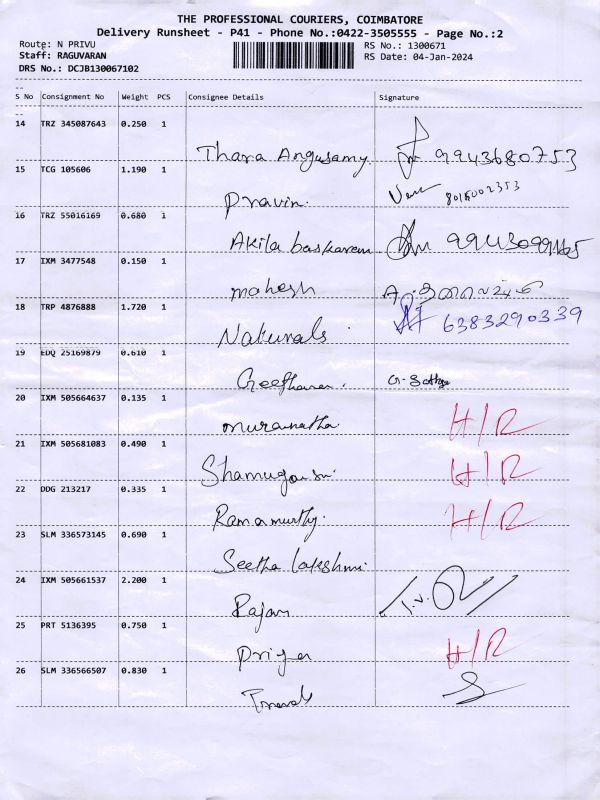 THE PROFESSIONAL COURIERS, COIMBATORE
Delivery Runsheet - P41 - Phone No.:0422-3505555 - Page No.:2
Route: N PRIVU RS No.: 1300671
Staff: RAGUVARAN RS Date: 04-Jan-2024
DRS No.: DCJB130067102
S No Consignment No Weight PCS Consignee Details Signature
14 TRZ 345087643 0.250 1
Thara Angusamy 9943680753
15 TCG 105606 1.190 1
Pravin.
16 TRZ 55016169 0.680 1
Akila baskaran
17 IXM 3477548 0.150 1
mahesh
18 TRP 4876888 1.720 1
Naturals 6383290339
19 EDQ 25169879 0.610 1
20 IXM 505664637 0.135 1
H/R
21 IXM 505681083 0.490 1
H/R
22 DDG 213217 0.335 1
Ramamurthy. H/R
23 SLM 336573145 0.690 1
Seetha lakshmi
24 IXM 505661537 2.200 1
Rajan
25 PRT 5136395 0.750 1
Priya H/R
26 SLM 336566507 0.830 1